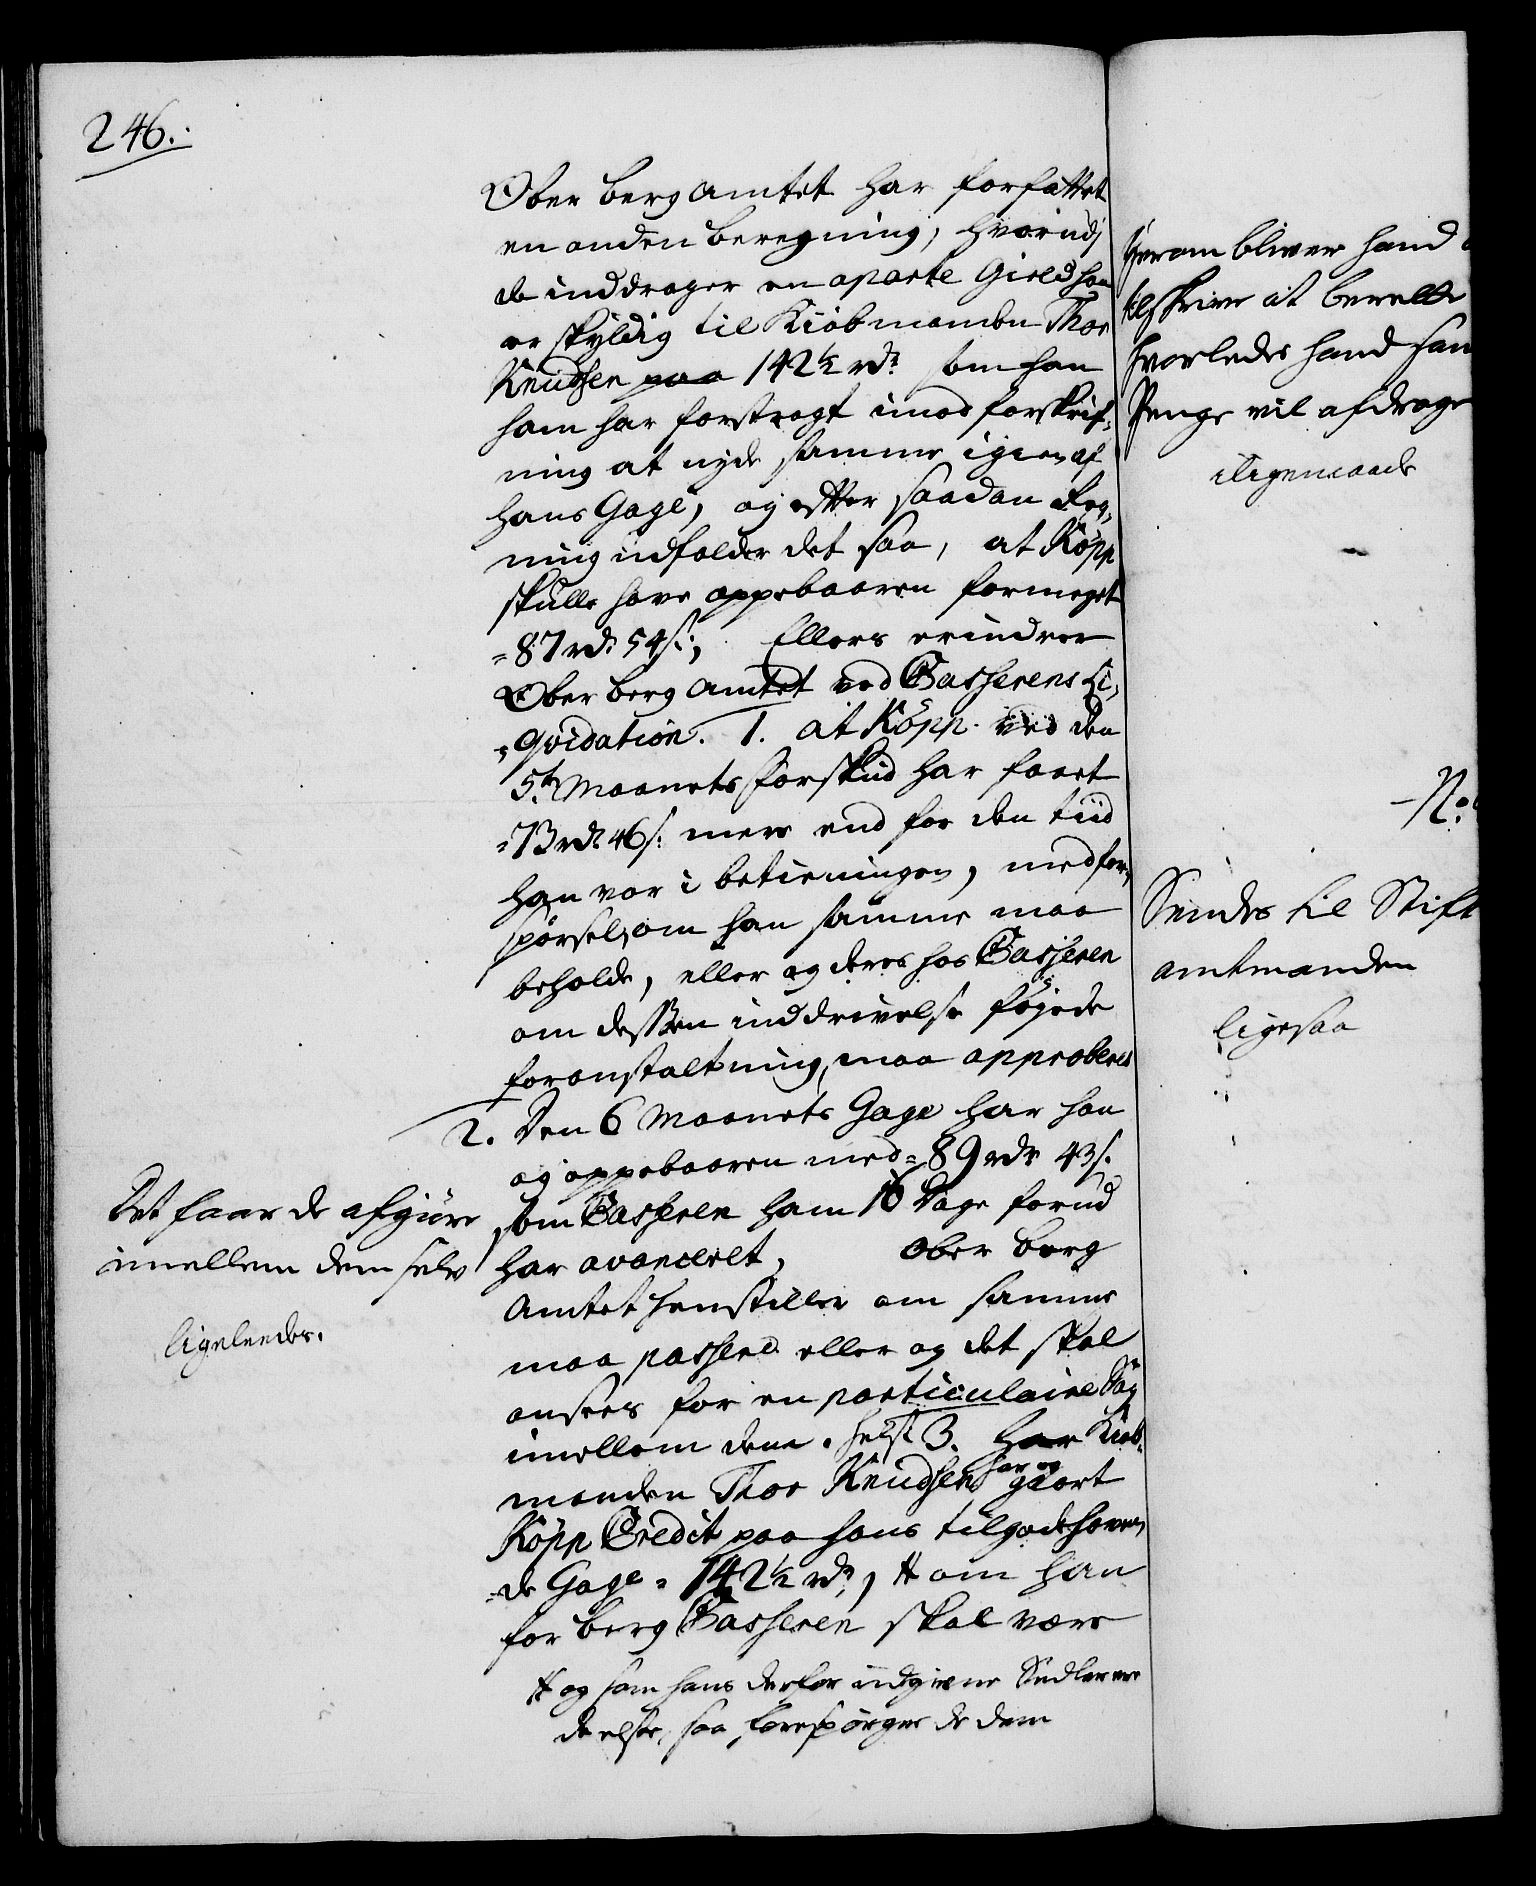 246.
Ober berg Amtet har forfattet
en anden beregning, hvorudj
de inddrager en aparte Gield han
er skyldig til Kiøbmanden Thor
Knudsen paa 142½ rdr som han
ham har forstragt imod forskrif-
ning at nyde samme igien af
hans Gage, og efter saadan Reg-
ning udfalder det saa, at Köpp
skulle have oppebaaren formeget
87 rdr 54 s:, Ellers erindrer
Ober berg Amtet ved Casserens Li-
qvidation. 1. at Köpp ved den
5te Maanets forskud har faaet
73 rdr 46 s: mere end for den tiid
han var i betieningen, med for-
spørsel, om han samme maa
beholde, eller og deres hos Casseren
om dessen inddrivelse føyede
foranstaltning, maa approberes
2. Den 6 Maanets Gage har han
og oppebaaren med 89 rdr 43 s.
som Casseren ham 16 Dage forud
har avanceret, Ober berg
Amtet henstiller om samme
maa passere eller og det skal
ansees for en particulaire Sag
imellem dem. helst 3. har Kiøb-
manden Thor Knudsen har og giort
Köpp Credit paa hans tilgodehaven-
de Gage 142½ rdr, # om han
for berg Casseren skal være
# og som hans derfor udgivne Sedler ere
deelse, saa forespørger de dem
Det faar de afgiøre
imellem dem selv
ligeleedes.
herom bliver hand
tilskriven at berette
hvorledes hand
Penge vil afdrage
iligemaade
No.
Sendes til Stift
amtmanden
ligesaa